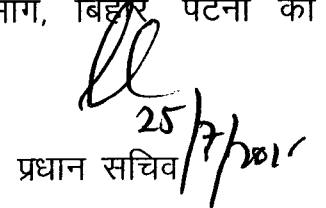 बिहार पटना को
25/7/201
प्रधान सचिव